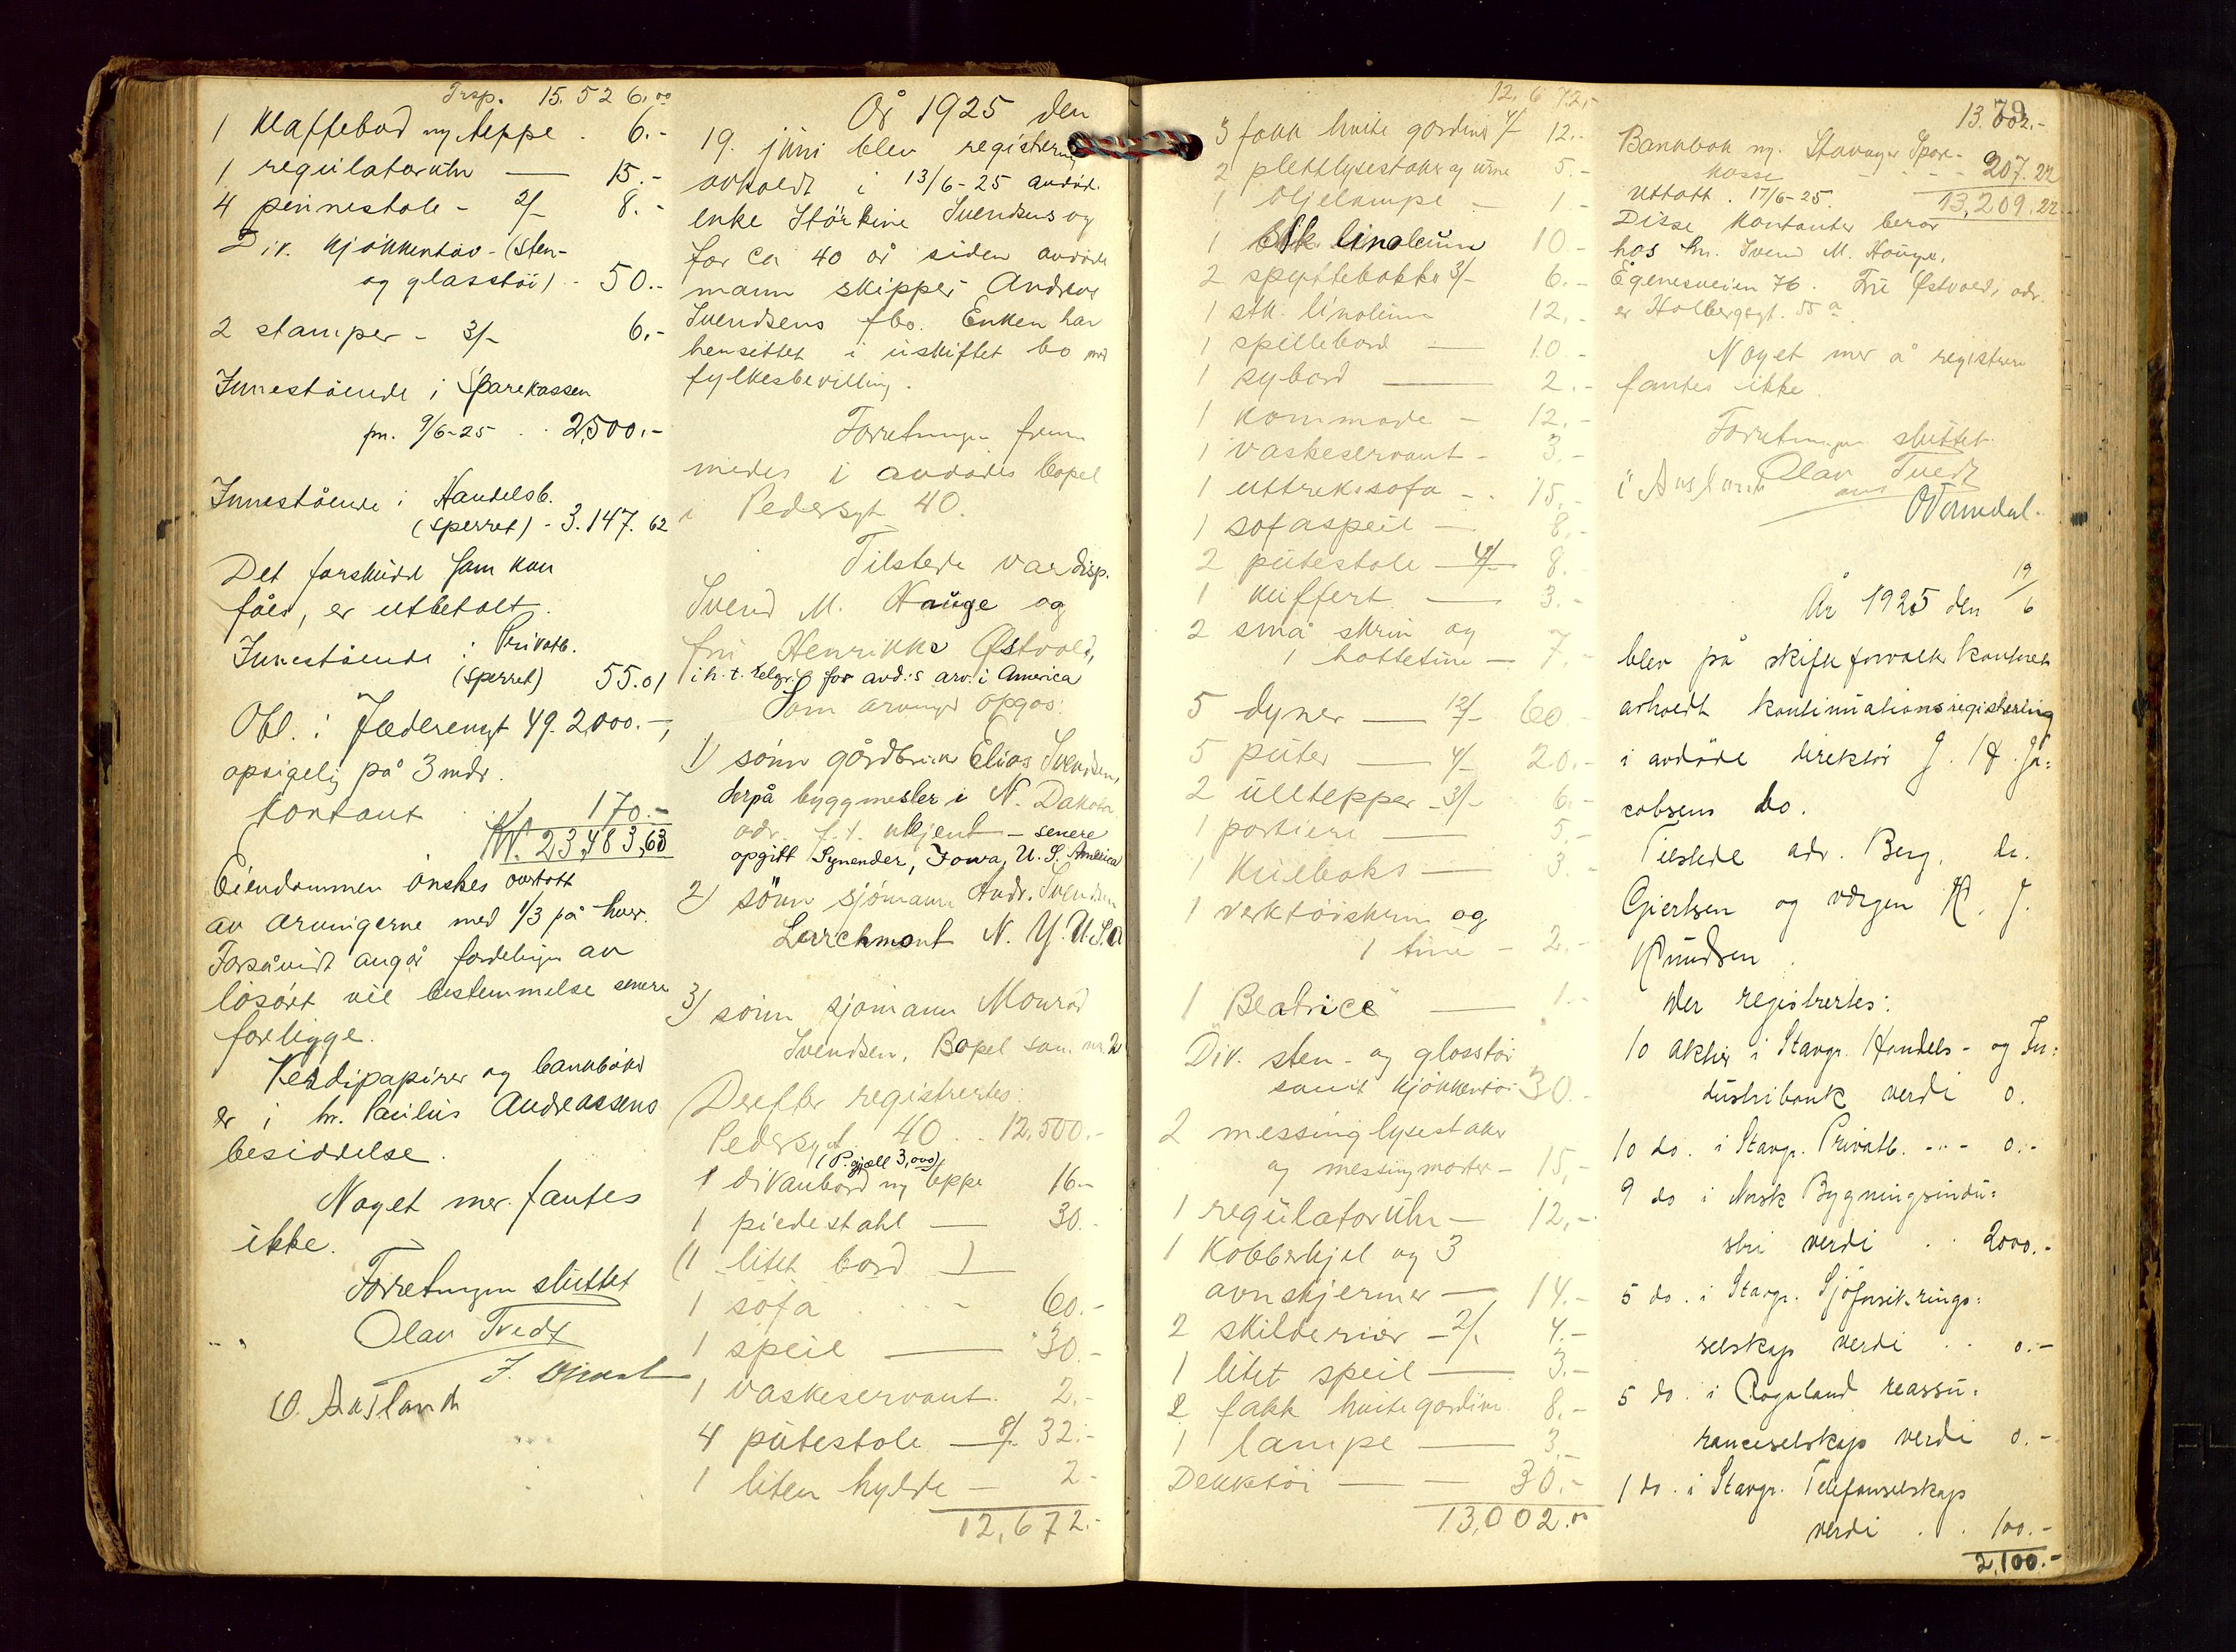 Trsp. 15.526.00
1 klaffebord m/ teppe . 6.-
1 regulatoruhr — 15.-
4 pinnestole - 2/- 8.-
Div. kjökkentöi - (sten-
og glasstöi) - 50.-
2 stamper - 3/- 6.-
Innestående i Sparekassen
pr. 9/6-25 . . 2,500.-
Innestående i Handelsb.
(sperret) - 3.147.62
Det forskudd som kan
fåes, er utbetalt.
Innestående i Privatb.
(sperret) 55.01
Obl. i Jæderengt 49. 2,000.-,
opsigelig på 3 mdr.
Kontant . . 170.-
Kr. 23,483,63
Eiendommen önskes overtatt
av arvingerne med 1/3 på hver.
Forsåvidt angår fordelingen av
lösöret vil bestemmelse senere
forligge.
Verdipapirer og bankböker
er i hr. Paulus Andreassens
besiddelse.
Noget mer fantes
ikke.
Forretningen sluttet
Olav Tvedt
O. Aasland
År 1925 den
19. juni blev registrering
avholdt i 13/6-25 avdöde
enke Störkine Svendsens og
for ca 40 år siden avdöde
mann skipper Andreas
Svendsens fbo. Enken har
hensittet i uskiftet bo med
fylkesbevilling.
Forretningen frem-
medes i avdödes bopel
i Pedersgt 40.
Tilstede var disp.
Svend M. Hauge og
fru Henrikke Østvold,
i h. t. telgr. for avd.s arv. i America
Som arvinger opgas:
1) sönn gårdbruker Elias Svendsen,
derpå byggmester i N. Dakota
adr. f. t. ukjent - senere
opgitt Synender, Iowa, U. S. America
2) sönn sjömann Andr. Svendsen
Larchmont N. Y. U.S.A
3) sönn sjömann Monrad
Svendsen, Bopel som nr. 2
Derefter registrertes:
Pedersgt. 40 . . 12,500.-
(P. gjæll 3,000)
1 divanbord m/ teppe 16.-
1 piedestahl — 30.-
(1 litet bord —)
1 sofa . . . . - 60.-
1 speil — 30.-
1 vaskeservant. 2.-
4 putestole — 8/- 32.-
1 liten hylde — 2.-
12,672.-
12.672.-
3 fakk hvite gardiner 4/- 12.-
2 plettlysestaker og urne 5.-
1 oljelampe — 1.-
1 stk. linoleum 10.-
2 spyttebakker 3/- 6.-
1 stk. linoleum 12.-
1 spillebord — 10.-
1 sybord — 2.-
1 kommode - 12.-
1 vaskeservant - 3.-
1 uttrekssofa - . 15.-
1 sofaspeil — 8.-
2 putestole - 4/- 8.-
1 kuffert — 3.-
2 små skrin og
1 hattetine — 7.-
5 dyner — 12/- 60.-
5 puter — 4/- 20.-
2 ulltepper - 3/- 6.-
1 portiere — 5.-
1 kulboks — 3.-
1 verktöiskrin og
1 tine - 2.-
1 "Beatrice" — 1.-
Div. sten- og glasstöi
samt kjökkentöi 30.-
2 messinglysestaker
og messingmorter - 15,-
1 regulatoruhr — 12,-
1 Kobberkjel og 3
ovnskjermer — 14.-
2 skilderier - 2/- 4.-
1 litet speil — 3.-
2 fakk hvite gardiner 8.-
1 lampe — 3.-
Dekktöi — 30.-
13,002.00
79
13.002.-
Bankbok m. Stavanger Spare-
kasse . . - - 207.22
Uttatt. 17/6-25. 13,209.22
Disse kontanter beror
hos hr. Svend M. Hauge,
Egenesveien 76. Fru Østvold, adr.
er Holbergsgt. 55 a
Noget mer å registrere
fantes ikke.
Forretningen sluttet.
Olav Tvedt
O. Aasland
År 1925 den 19/6
blev på skifteforvalter kontoret
avholdt kontinuationsregistrering
i avdöde direktör J. H. Ja-
cobsens bo.
Tilstede adv. Berg, hr.
Gjertsen og vergen K. J.
Knudsen.
Der registrertes:
10 aktier i Stavgr. Handels- og In-
dustribank verdi 0.
10 do. i Stavgr. Privatb. . - - 0.-
9 do i Norsk Bygningsindu-
stri verdi . . 2000.-
5 do. i Stavgr. Sjöforsikrings-
selskap verdi . . 0.-
5 do. i Rogaland reassu-
ranceselskap verdi 0.-
1 do. i Stavgr. Telefonselskap
verdi . . 100.-
2,100.-